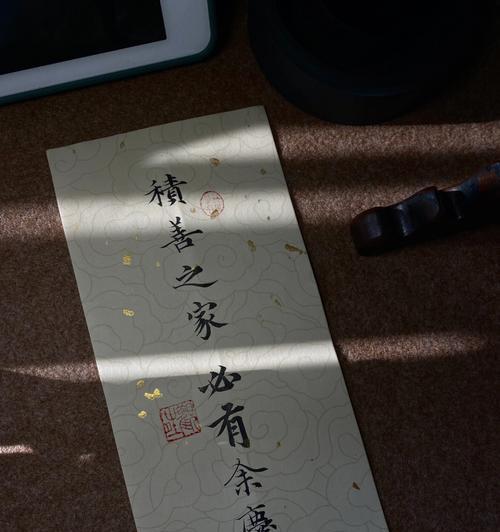 積善之家必有余慶